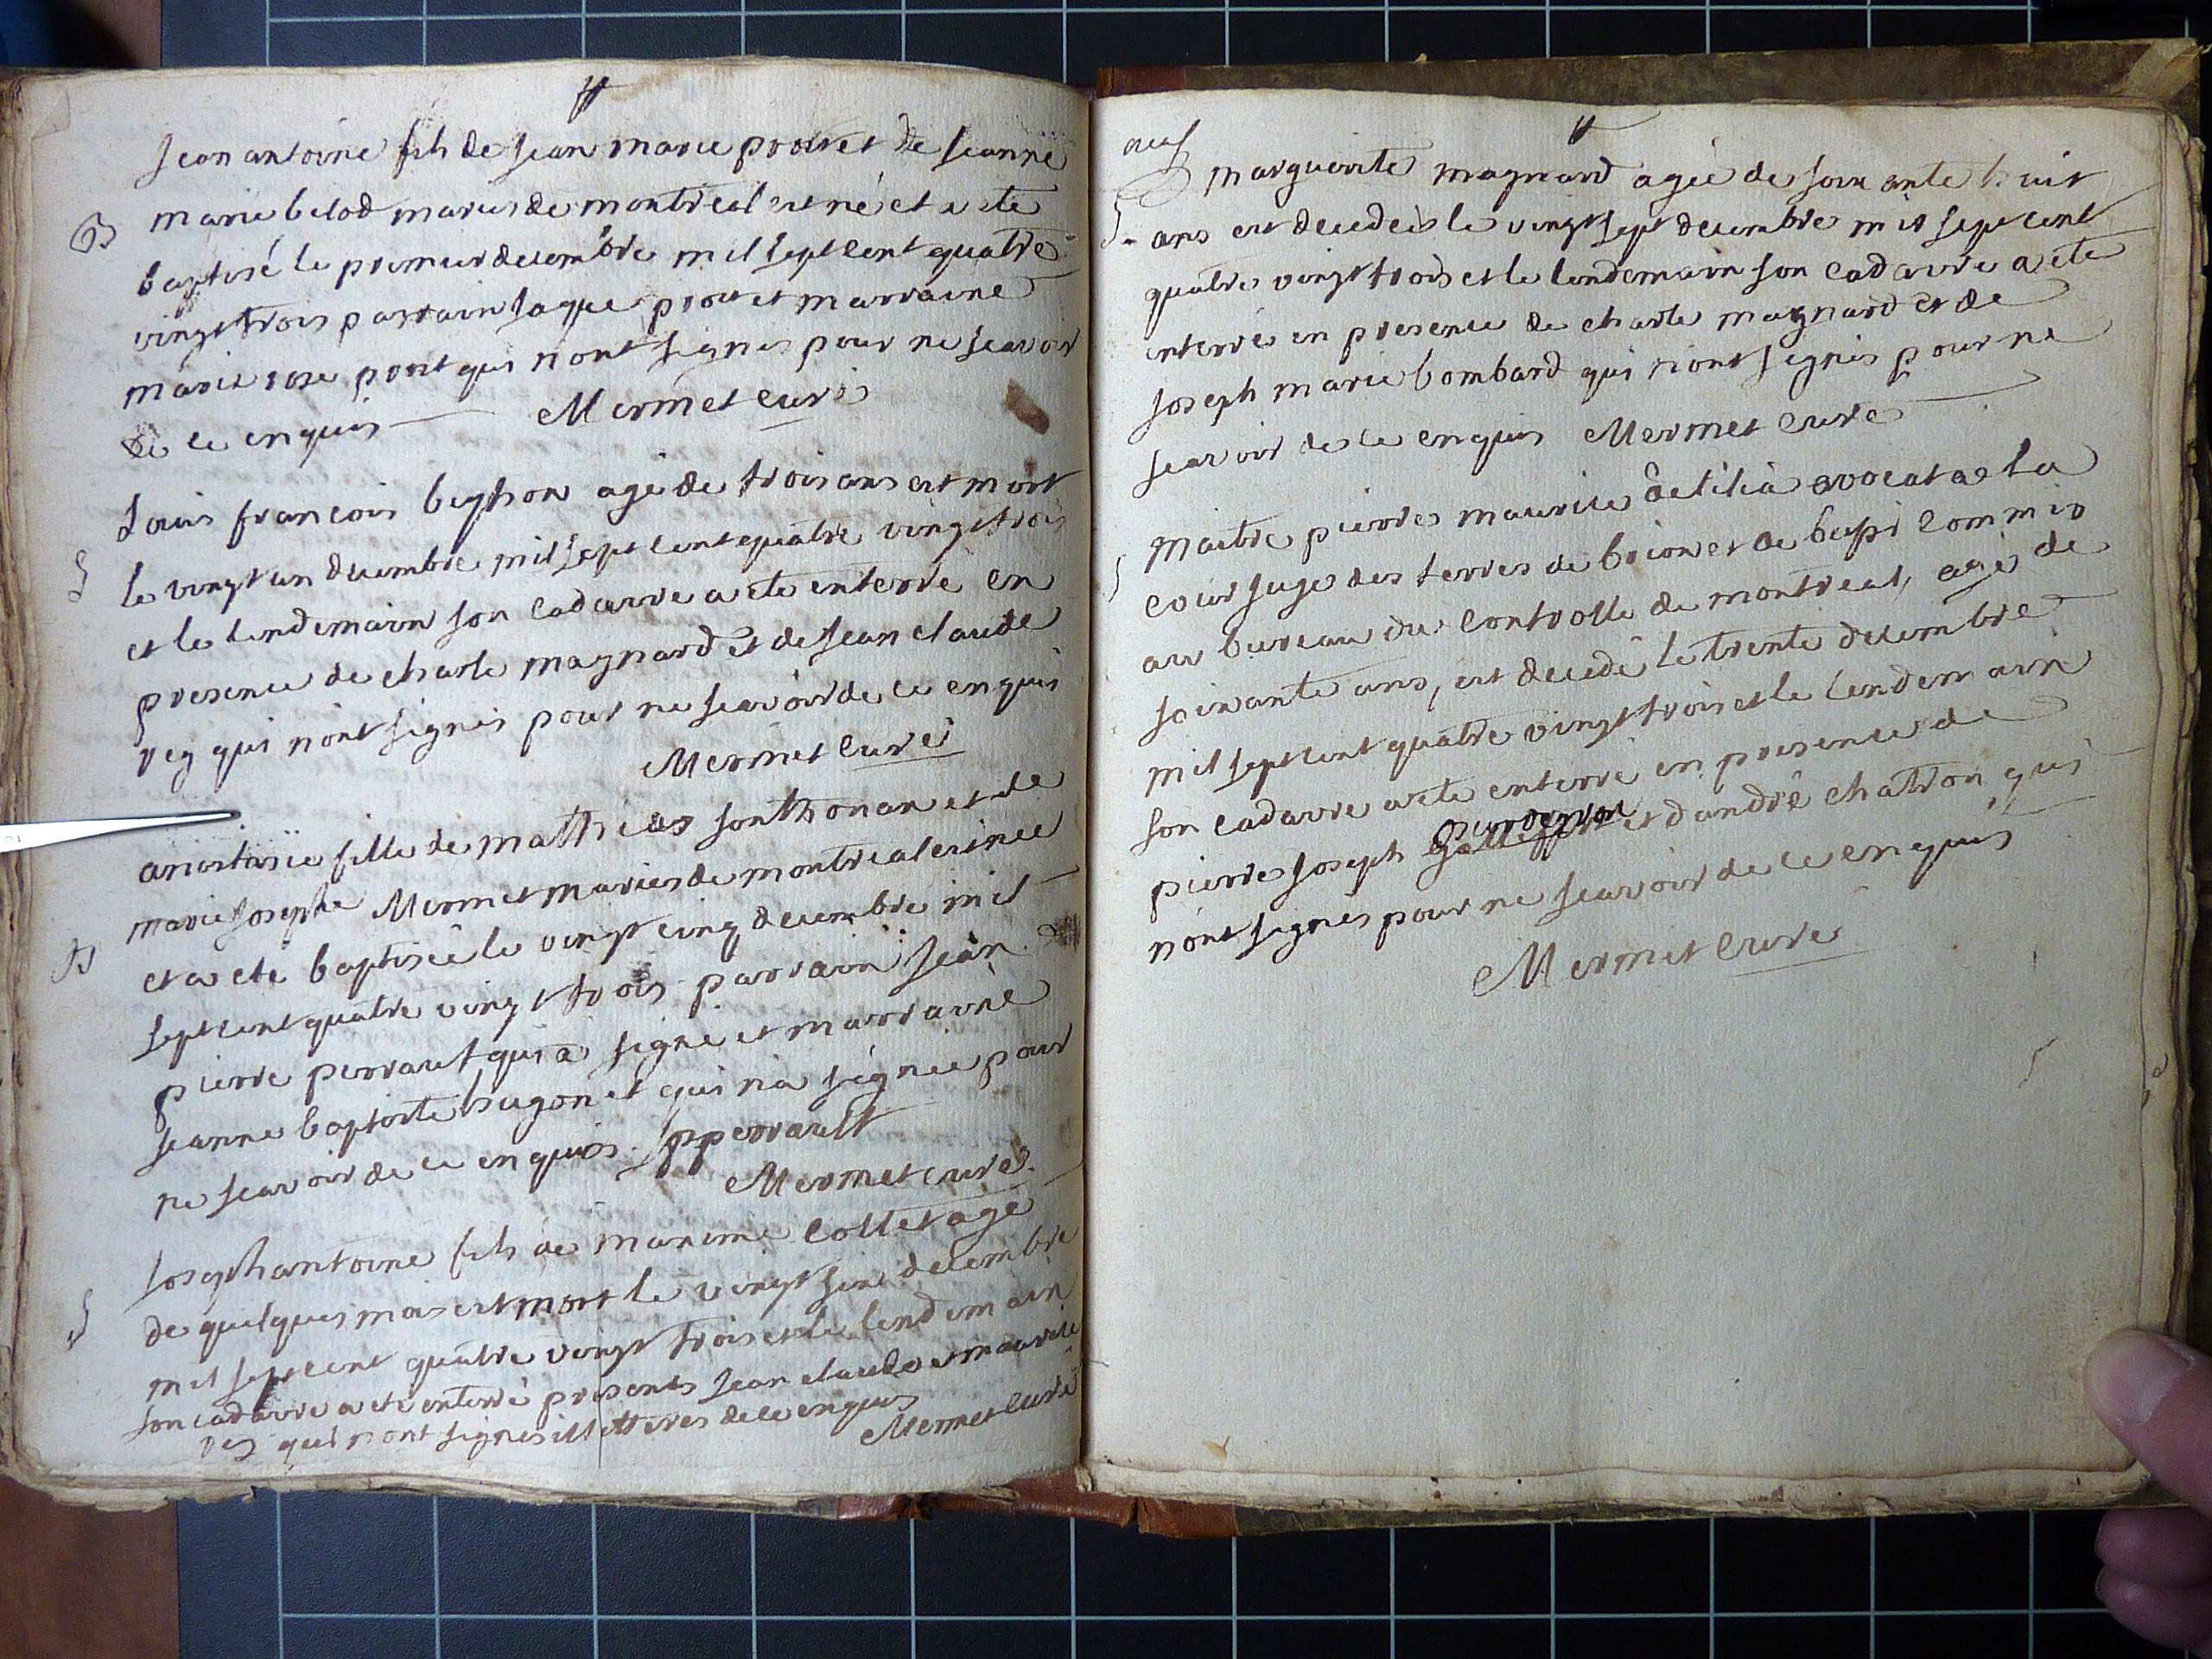 Jean antoine fils de jean marie prost et de jeanne
B
marie belod maries de montreal est né et a ete
baptisé le premier decembre mil sept cent quatre
vingt trois parrain jaque prost et marraine
marie rose prost qui nont signes pour ne scavoir
de ce enquis Mermet curé
Louis francois beyssson agé de trois ans est mort
S
le vingt un decembre mil sept cent quatre vingt trois
et le lendemain son cadavre a ete enterre en
presence de charle magnard et de jean claude
rey qui nont signes pour ne scavoir de ce enquis
Mermet curé
anastasie fille de mathieu sonthonax et de
marie josephe Mermet maries de montreal est née
B
et a eté baptisée le vingt cinq decembre mil
sept cent quatre vingt trois parrain jean
pierre perraut qui a signe et marraine
jeanne baptiste hugonet qui na signée pour
ne scavoir de ce enquis. jpperrault
Mermet curé
Joseph antoine fils de maxime Collet age
S
de quelques mois est mort le vingt six decembre
mil sept cent quatre vingt trois et le lendemain
son cadavre a ete enterré presents jean claude et maurice
rey qui nont signes illetteres de ce enquis
Mermet curé
neuf
marguerite magnard agée de soixante huit
S
ans est decedeé le vingt sept decembre mil sept cent
quatre vingt trois et le lendemain son cadavre a ete
enterré en presence de charle magnard et de
joseph marie bombard qui nont signes pour ne
scavoir de ce enquis Mermet curé
S
maitre pierre maurice avocat a la
cour juge des terres de brion et de commis
au bureau du controlle de montreal, agé de
soixante ans, est decedé le trente decembre
mil sept cent quatre vingt trois et le lendemain
son cadavre a ete enterré en presence de
pierre joseph et dandré chatron qui
nont signés pour ne scavoir de ce enquis
Mermet curé